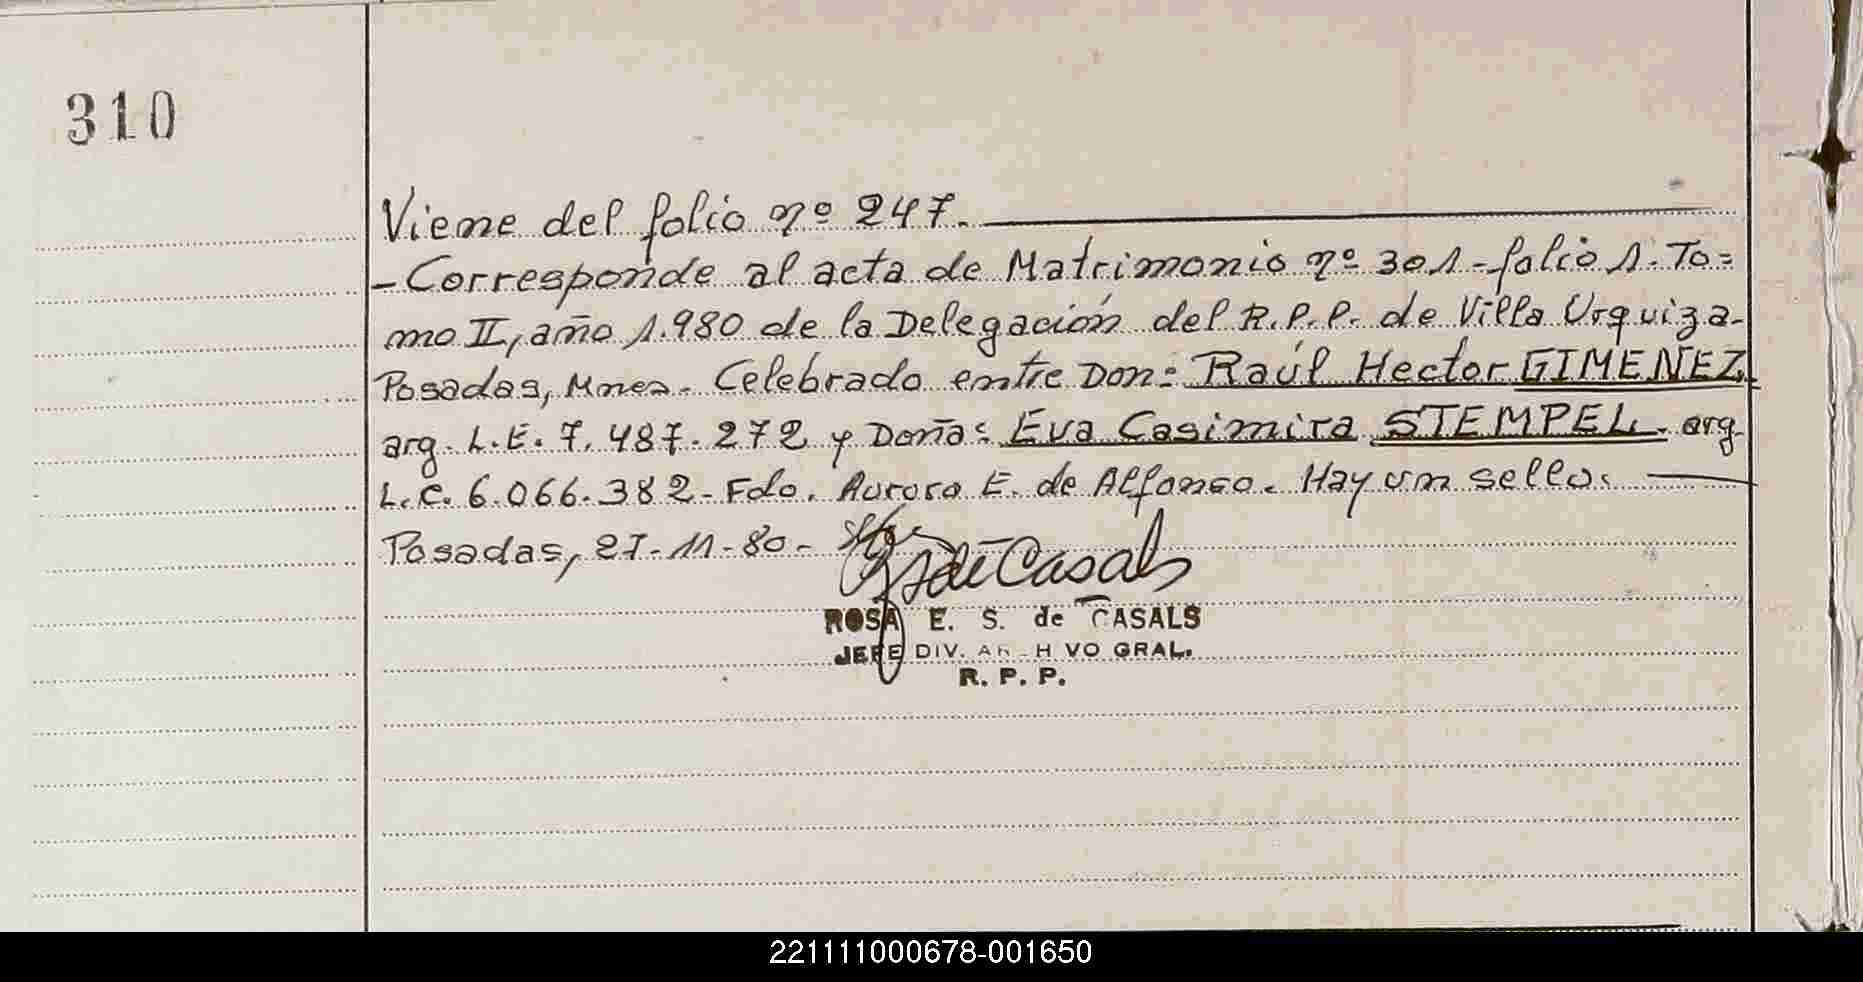 310
Viene del folio nº 247.
- Corresponde al acta de Matrimonio nº 301 - folio 1. To=
mo II, año 1.980 de la Delegación del R.P.P. de Villa Urquiza-
Posadas, Mnes. Celebrado entre Don: Raúl Hector GIMENEZ
arg. L.E. 7.487.272 y Doña: Eva Casimira STEMPEL. arg
L.C. 6.066.382 - Fdo. Aurora E. de Alfonso. Hay un sello.
Posadas, 27-11-80-
de Casals
ROSA E. S. de CASALS
JEFE DIV. AR H VO GRAL.
R. P. P.
221111000678-001650